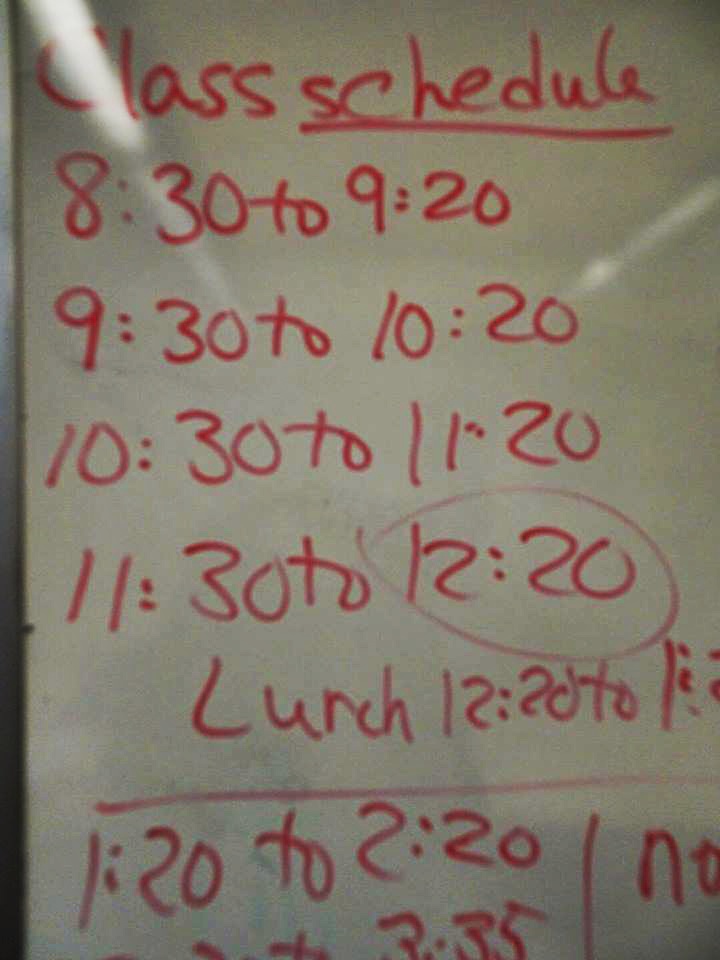 Class schedule
8:30 to 9:20
9:30 to 10:20
10:30 to 11:20
11:30 to 12:20
Lunch 12:20 to
1:20 to 2:20
to 3:35